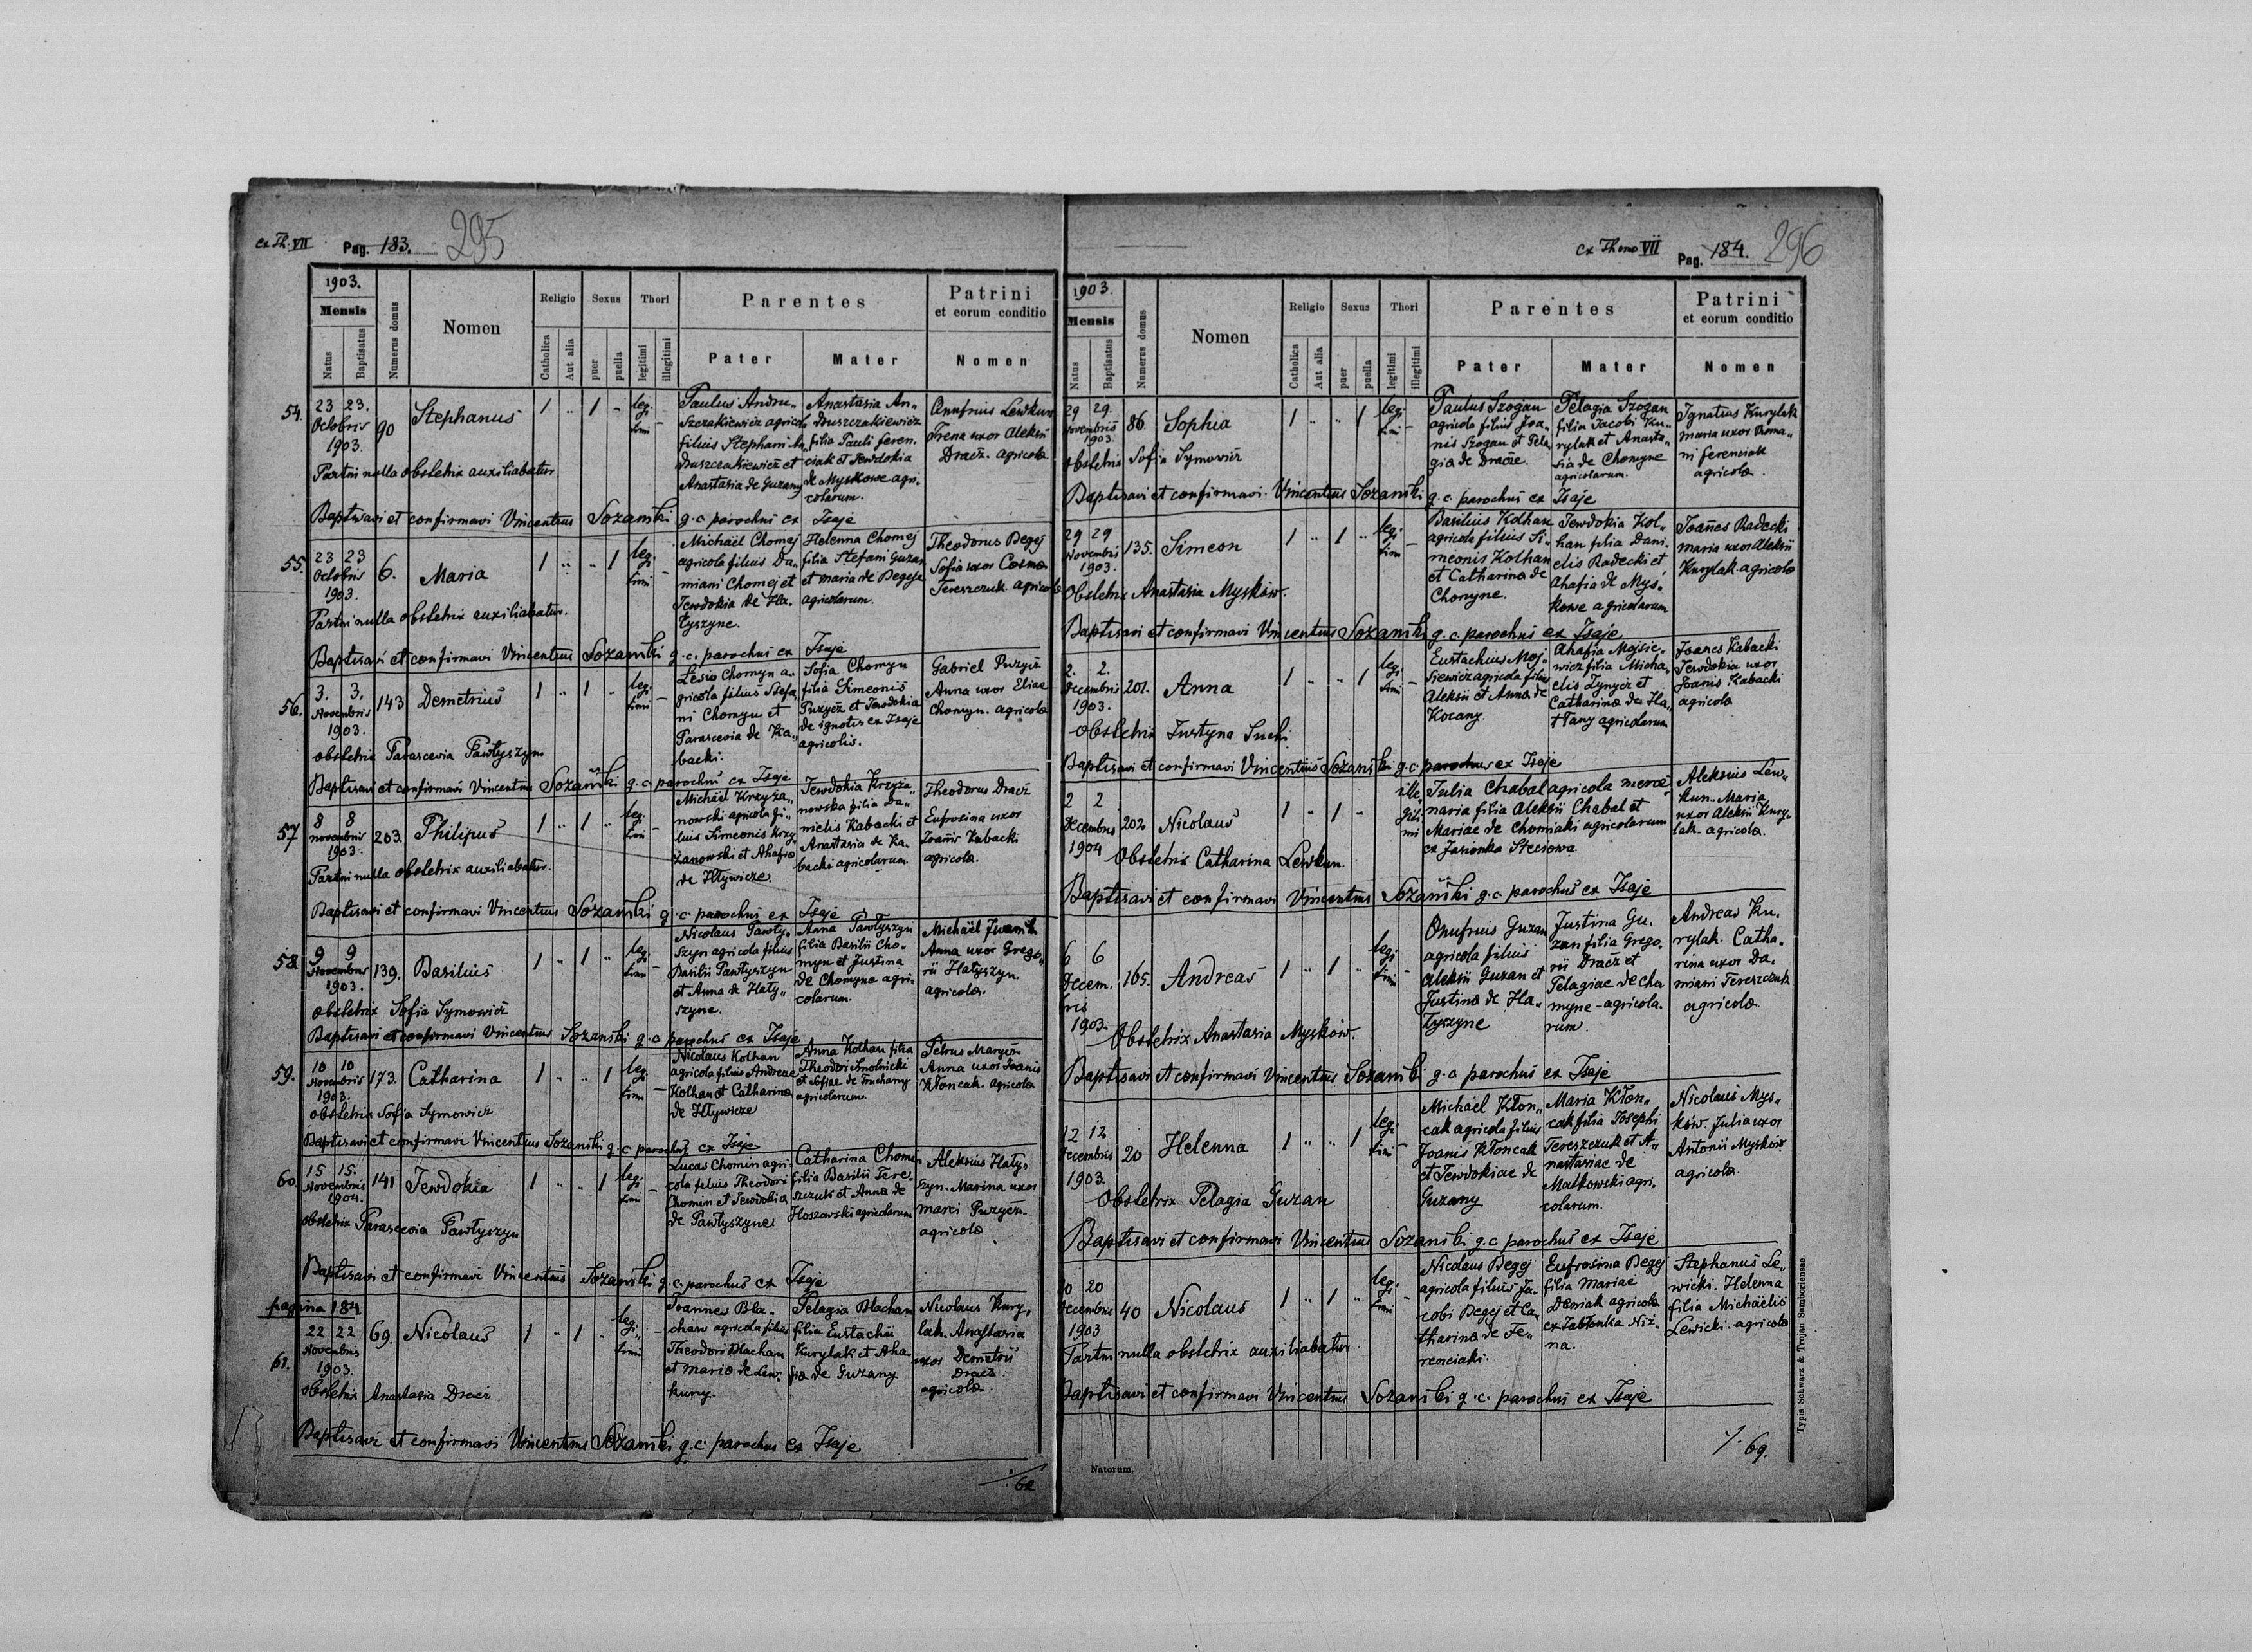 ex Th. VII Pag. 183. 295
1903.
Mensis
Natus
Baptisatus
Numerus domus
Nomen
Religio
Catholica
Aut alia
Sexus
puer
puella
Thori
legitimi
illegitimi
Parentes
Pater
Mater
Patrini
et eorum conditio
Nomen
54. 23 23. Octobris 1903. 90 Stephanus 1 " 1 - legitimi -
Paulus Andru„
szczakiewicz agricola
filius Stephani An„
druszczakiewicz et
Anastasia de Guzany
Anastasia An„
druszczakiewicz
filia Pauli Feren„
ciak et Jewdokia
de Myskowe agri„
colarum.
Onufrius Lewkun
Irena uxor Aleksii
Dracz. agricola
Partui nulla obstetrix auxiliabatur
Baptisavi et confirmavi Vincentius Sozański g.c parochus ex Isaje
55. 23 23 Octobris 1903. 6. Maria 1 " " 1 legitimi -
Michaël Chomej
agricola filius Da„
miani Chomej et
Jewdokia de Ha„
tyszyne.
Helenna Chomej
filia Stefani Guzan
et Maria de Begeje
agricolarum.
Theodorus Begej
Sofia uxor Cosmae
Tereszczuk agricola
Partui nulla obstetrix auxiliabatur.
Baptisavi et confirmavi Vincentius Sozański g.c. parochus ex Isaje
56. 3. 3. Novembris 1903. 143 Demetrius 1 " 1 " legitimi -
Lesio Chomyn a„
gricola filius Stefa„
ni Chomyn et
Parascevia de Ka„
backi.
Sofia Chomyn
filia Simeonis
Puzycz et Jewdokia
de ignotis ex Isaje
agricolis.
Gabriel Puzycz
Anna uxor Eliae
Chomyn. agricola
obstetrix Parascevia Pawłyszyn
Baptisavi et confirmavi Vincentius Sozański g.c parochus ex Isaje
57 8 8 novembris 1903. 203. Philipus 1 " 1 " legitimi -
Michaël Krzyża„
nowski agricola fi„
lius Simeonis Krzy„
żanowski et Ahafia
de Hływicze
Jewdokia Krzyża„
nowska filia Da„
nielis Kabacki et
Anastasia de Ka„
backi agricolarum
Theodorus Dracz
Eufrosina uxor
Joañis Kabacki
agricola.
Partui nulla obstetrix auxiliabatur.
Baptisavi et confirmavi Vincentius Sozański g.c parochus ex Isaje
58. 9 9 Novembris 1903. 139. Basilius 1 " 1 " legitimi -
Nicolaus Pawły„
szyn agricola filius
Basilii Pawłyszyn
et Anna de Haty„
szyne.
Anna Pawłyszyn
filia Basilii Cho„
myn et Justina
de Chomyne agri„
colarum.
Michaël Iwanik
Anna uxor Grego„
rii Hatyszyn.
agricola.
obstetrix Sofia Symowicz
Baptisavi et confirmavi Vincentius Sozański g.c parochus ex Isaje
59. 10 10 Novembris 1903. 173. Catharina 1 " " 1 legitimi -
Nicolaus Kolhan
agricola filius Andreae
Kolhan et Catharina
de Hływicze
Anna Kolhan filia
Theodori Smolnicki
et Sofiae de Truchany
agricolarum.
Petrus Marycz
Anna uxor Joanis
Kłoncak. agricola
obstetrix Sofia Symowicz
Baptisavi et confirmavi Vincentius Sozański g.c parochus ex Isaje
60. 15 15. Novembris 1904. 141 Jewdokia 1 " " 1 legitimi -
Lucas Chomin agri„
cola filius Theodori
Chomin et Jewdokia
de Pawłyszyne
Catharina Chomin
filia Basilii Tere„
szczuk et Anna de
Hoszowski agricolarum
Aleksius Haty„
szyn. Marina uxor
Marci Puzycz
agricola
obstetrix Parascevia Pawłyszyn
Baptisavi et confirmavi Vincentius Sozański g.c. parochus ex Isaje
pagina 184
61. 22 22 Novembris 1903. 69. Nicolaus 1 " 1 " legitimi -
Joannes Bla„
chan agricola filius
Theodori Blachan
et Maria de Lew„
kuny.
Pelagia Blachan
filia Eustachii
Kurylak et Aha„
fia de Guzany
Nicolaus Kury„
lak. Anastasia
uxor Demetrii
Dracz.
agricola.
obstetrix Anastasia Dracz
Baptisavi et confirmavi Vincentius Sozański g.c. parochus ex Isaje
./. 62
ex Thomo VII Pag. 184. 296
1903.
Mensis
Natus
Baptisatus
Numerus domus
Nomen
Religio
Catholica
Aut alia
Sexus
puer
puella
Thori
legitimi
illegitimi
Parentes
Pater
Mater
Patrini
et eorum conditio
Nomen
29 29. Novembris 1903. 86. Sophia 1 " " 1 legitimi -
Paulus Szogan
agricola filius Joa„
nis Szogan et Pela
gia de Dracze.
Pelagia Szogan
filia Jacobi Ku„
rylak et Anasta„
sia de Chomyne
agricolarum.
Ignatius Kurylak
Maria uxor Roma„
ni Ferenciak
agricola.
obstetrix Sofia Symowicz
Baptisavi et confirmavi Vincentius Sozański g.c. parochus ex Isaje
29 29 Novembris 1903. 135. Simeon 1 " 1 " legitimi -
Basilius Kolhan
agricola filius Si„
meonis Kolhan
et Catharina de
Chomyne.
Jewdokia Kol„
han filia Dani„
elis Radecki et
Ahafia de Mys„
kowe agricolarum
Joañes Radecki
Maria uxor Aleksii
Kurylak agricola
Obstetrix Anastasia Mysków.
Baptisavi et confirmavi Vincentius Sozański g.c. parochus ex Isaje
2. 2. Decembris 1903. 201. Anna 1 " " 1 legitimi -
Eustachius Moj„
siewicz agricola filius
Aleksii et Anna de
Kocany.
Ahafia Mojsie„
wicz filia Micha„
elis Zynycz et
Catharina de Ha„
tany agricolarum
Joanes Kabacki
Jewdokia uxor
Joanis Kabacki
agricola
obstetrix Justyna Suchi
Baptisavi et confirmavi Vincentius Sozański g.c. parochus ex Isaje
2 2 Decembris 1904 202 Nicolaus 1 " 1 " illegitimi
Julia Chabal agricola merce„
naria filia Aleksii Chabal et
Mariae de Chomiaki agricolarum
ex Jasionka Steciowa
Aleksius Lew„
kun. Maria
uxor Aleksii Kury„
lak. agricola.
Obstetrix Catharina Lewkun.
Baptisavi et confirmavi Vincentius Sozański g.c. parochus ex Isaje
6 6 Decembris 1903. 165. Andreas 1 " 1 " legitimi -
Onufrius Guzan
agricola filius
Aleksii Guzan et
Justina de Ha„
tyszyne
Justina Gu„
zan filia Grego„
rii Dracz et
Pelagiae de Cho
myne - agricola„
rum.
Andreas Ku„
rylak. Catha„
rina uxor Da„
miani Tereszczuk
agricola.
Obstetrix Anastasia Myskow.
Baptisavi et confirmavi Vincentius Sozański g.c parochus ex Isaje
12 12 Decembris 1903. 20 Helenna 1 " " 1 legitimi -
Michaël Kłon„
cak agricola filius
Joanis Kłoncak
et Jewdokiae de
Guzany
Maria Kłon„
cak filia Josephi
Tereszczuk et A„
nastasiae de
Matkowski agri„
colarum.
Nicolaus Mys„
ków. Julia uxor
Antonii Myskow
agricola.
Obstetrix Pelagia Guzan
Baptisavi et confirmavi Vincentius Sozański g.c parochus ex Isaje
20 Decembris 1903 40 Nicolaus 1 " 1 " legitimi -
Nicolaus Begej
agricola filius Ja„
cobi Begej et Ca„
tharina de Fe„
renciaki.
Eufrosina Begej
filia Mariae
Deniak agricola
ex Jabłonka Niż„
na.
Stephanus Le„
wicki. Helenna
filia Michaëlis
Lewicki. agricola
Partui nulla obstetrix auxiliabatur.
Baptisavi et confirmavi Vincentius Sozański g.c. parochus ex Isaje
./. 69.
Natorum.
Typis Schwarz & Trojan Samborienae.